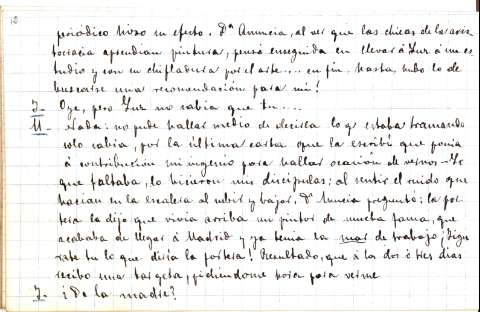 10
periódico hizo su efecto. Dª Anuncia, al ver que las chicas de la aris
tocracia aprendian pintura, pensó enseguida en llevar á Luz á un es
tudio y con su chifladura por el arte.... en fin, hasta, hubo lo de
buscarse una recomendación para mi!
J- Oye, pero Luz no sabia que tu....
M- Nada: no pude hallar medio de decirla lo q. estaba tramando
solo sabia, por la última carta que la escribí que ponia
á contribución mi ingenio para hallar ocasión de vernos - Lo
que faltaba, lo hicieron mis discipulas; al sentir el ruido que
hacian en la escalera al subir y bajar, Dª Anuncia preguntó: la por
tera la dijo que vivia arriba un pintor de mucha fama, que
acababa de llegar á Madrid y ya tenia la mar de trabajo ¡Figu
rate tu lo que diria la portera! Resultado, que á los dos ó tres dias
recibo una targeta, pidiendome hora para verme
J- ¿De la madre?